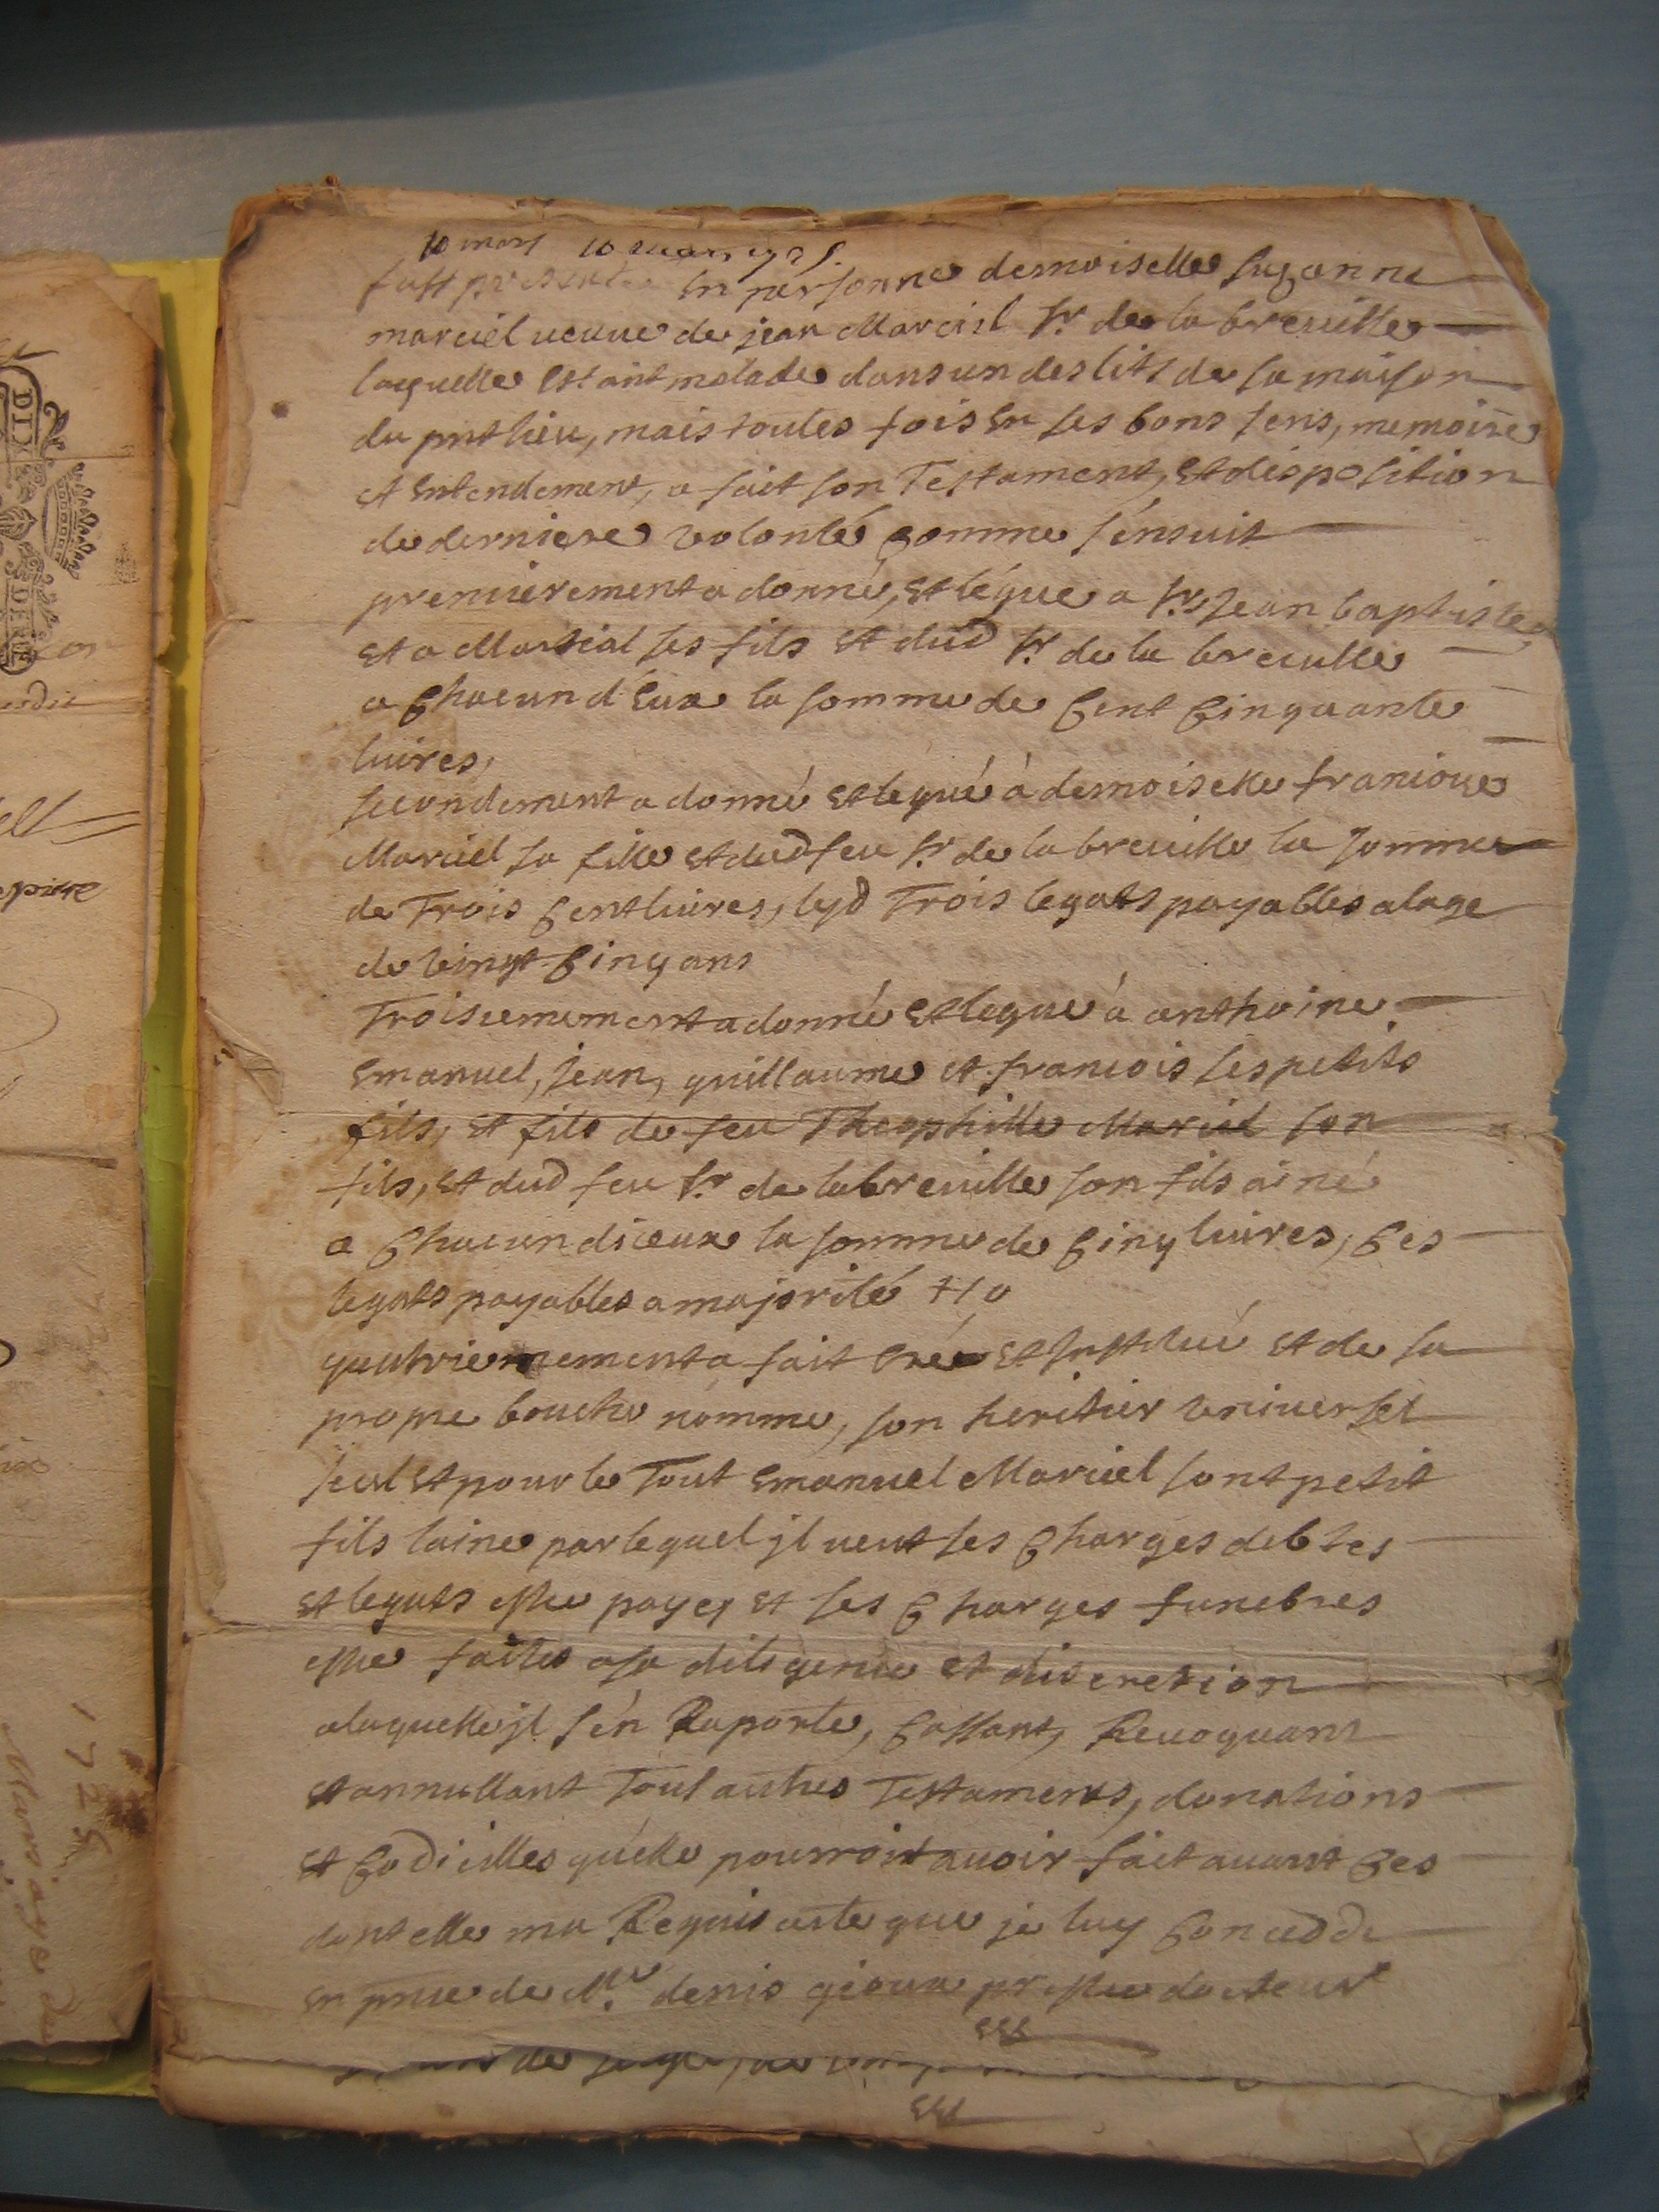 10 mars 10 mars
fust presente En personne demoiselle suzanne
marciel ueuue de jean Marcisl sr. de la breuille
laquelle estant malade dans un des lits de sa maison
du pnt lieu, mais toutes fois En ses bons sens, memoire
et Entendement, a fait son Testament, Et disposition
de derniere volonté Comme s'ensuit
premierement a donné, Et légue a srs. Jean baptiste
Et a Martial ses fils Et dud sr. de la breuille
a Chacun d'Eux la somme de Cent Cinquante
liures,
secondement a donné Et legué à demoiselle francoise
Marciel sa fille Et dud feu sr de la breuille la somme
de Trois Cent liures, lesd Trois legats payables a lage
de vingt Cinq ans
Troisiemement a donné Et legué à anthoine
Emanuel, jean, guillaume et francois ses petits
fils, Et fils de feu Theophille Marciel son
fils, Et dud feu sr. de la breuille son fils ainé
a Chacun diceux la somme de Cinq liures, Ces
legats payables a majorité
quatriemement a fait Créé Et Institué Et de sa
propre bouche nommé, son heritier vniuersel
seul Et pour le Tout Emanuel Marciel sont petit
fils laine par lequel jl ueut ses Charges debtes
Et legats estre payes Et ses Charges funebres
estre faites a sa diligence et discretion
a laquelle jl s'en Raporte, Cassant, Reuoquant
Et annullant Tout autres Testaments, donations
Et Codicilles qu'elle pourroit auoir fait auant Ces
dont elle ma Requis acte que je luy Concedde
En pnce de Mre. denis gioux prestre docteur